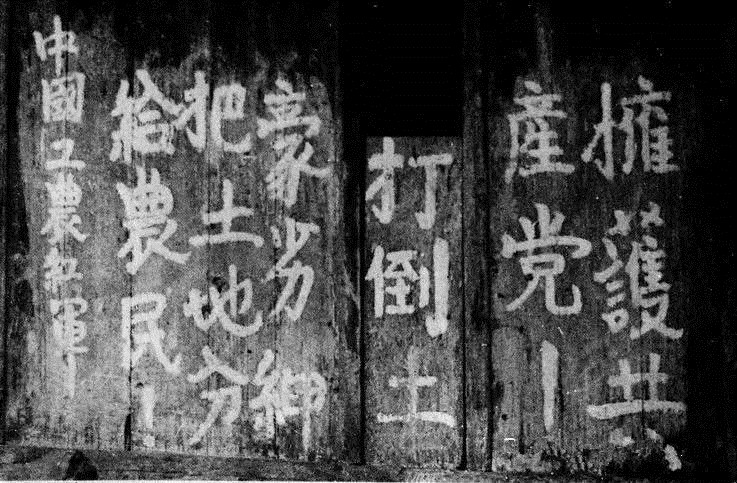 擁護共
産党!
打倒土
豪劣紳
把土地分
給農民!
中國工農紅軍!